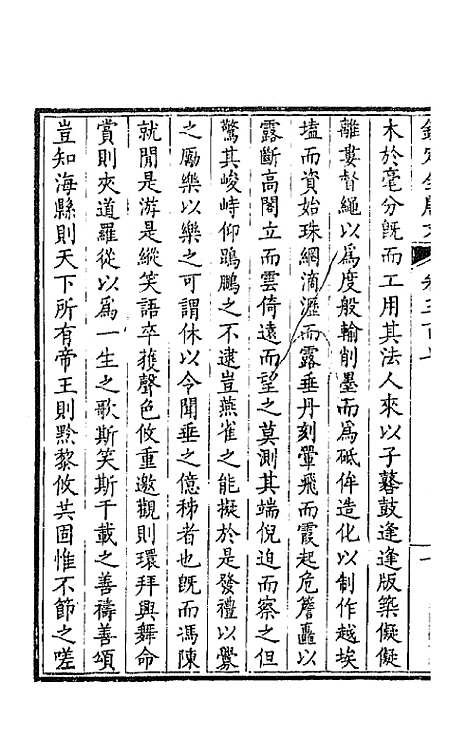 欽定全唐文 卷三百七
木於毫分旣而工用其法人來以子鼛鼓逢逢版築儗儗
離婁督繩以爲度般輸削墨而爲砥侔造化以制作越埃
壒而資始珠網滴瀝而露垂丹刻翬飛而霞起危簷矗以
露斷高閣立而雲倚遠而望之莫測其端倪迫而察之但
驚其峻峙仰鵾鵬之不逮豈燕雀之能擬於是發禮以釁
之勵樂以樂之可謂休以令聞垂之億秭者也旣而馮陳
就閒是游是縱笑語卒獲聲色攸重邀觀則環拜與舞命
賞則夾道羅從以爲一生之歌斯笑斯千載之善禱善頌
豈知海縣則天下所有帝王則黔黎攸共固惟不節之嗟